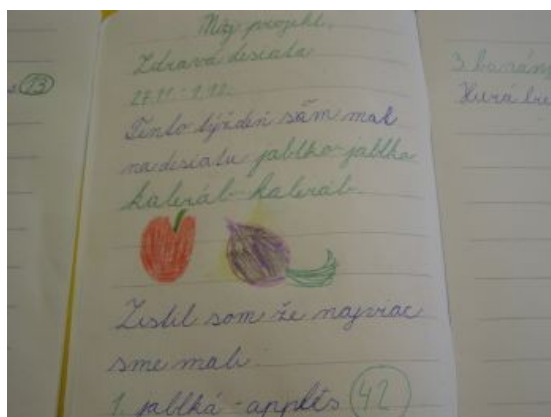 Môj projekt.
Zdravá desiata
27.11. - 1.12.
Tento týždeň sām mal
na desiatu jablko-jablko
kaleráb-kaleráb
Zistil som že najviac
sme mali
1. jablká - apples 42
13
3. banány